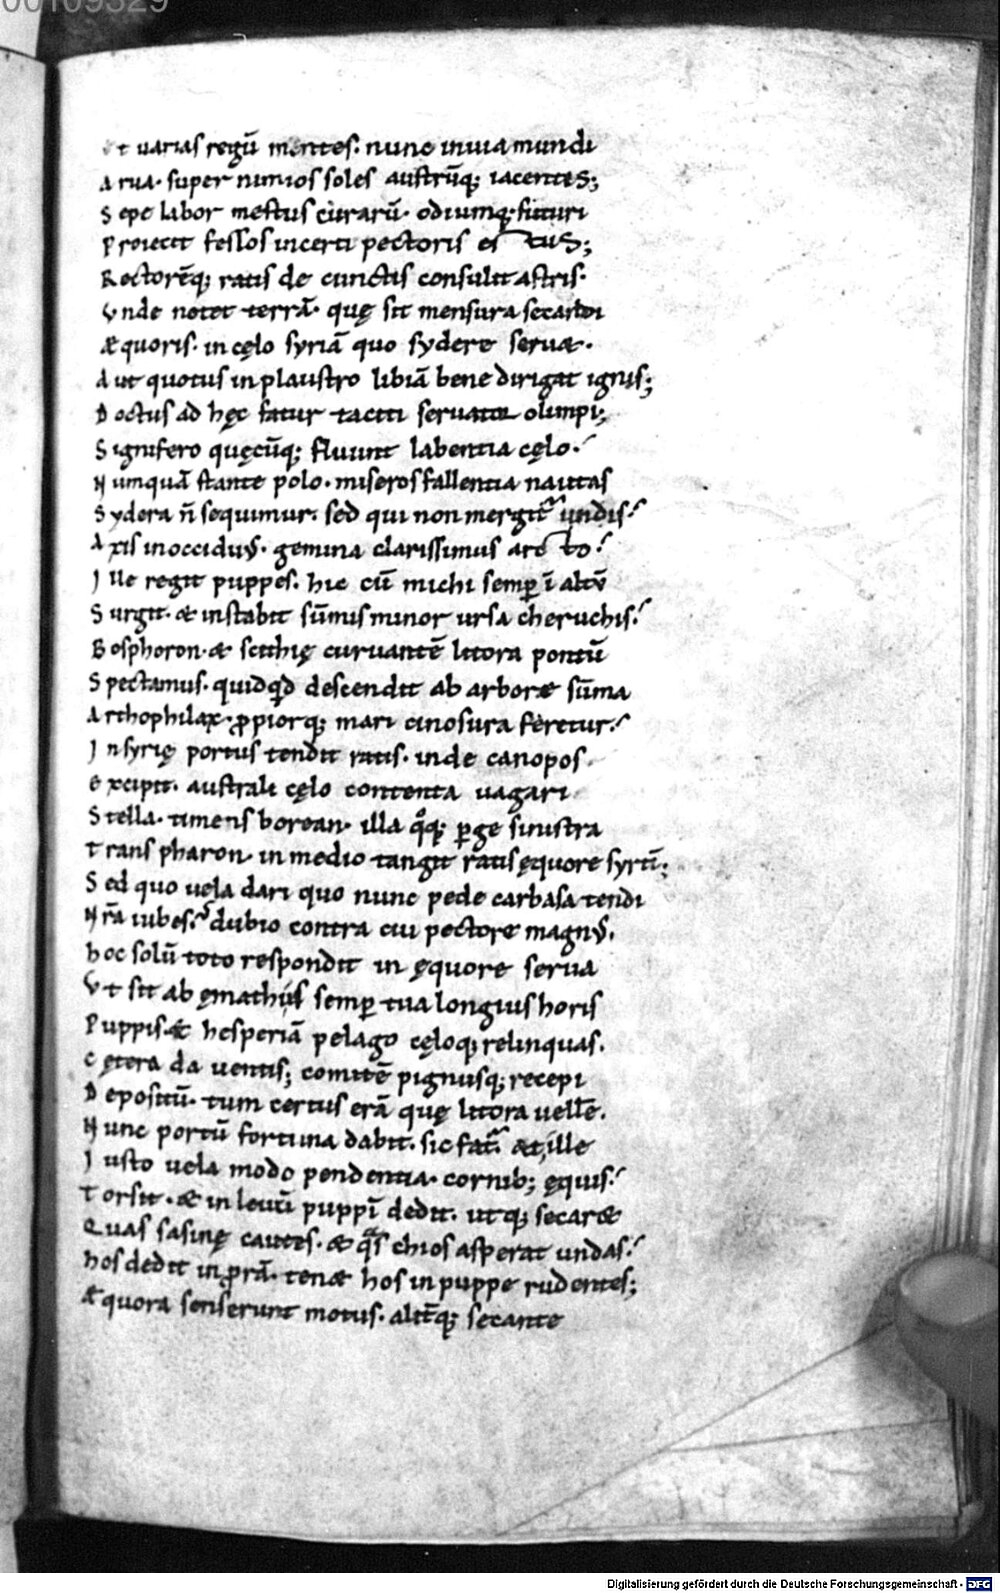 00109329
Et varias regū mentes. nunc inuia mundi
Arua. super nimios soles austrūq; iacentes;
Sepe labor mestus curarū. odiumq; futuri
Proiecit fessos incerti pectoris estus;
Rectorēq; ratis de cunctis consulit astris.
Vnde notet terrā. quę sit mensura secandi
Æquoris. in cęlo syriā quo sydere seruæ.
Aut quotus in plaustro libiā bene dirigat ignis;
Doctus ad hęc fatur taciti seruator olimpi;
Signifero quęcūq; fluunt labentia cęlo.
Numquā stante polo. miseros fallentia nautas
Sydera n̄ sequimur. sed qui non mergit᷑ undis.
Axis inocciduus. gemina clarissimus arcto.
Ille regit puppes. hic cū michi semp̲ ī altū
Surgit. & instabit sūmis minor ursa cheruchis.
Bosphoron. & scithię curuantē litora pontū
Spectamus. quidq̄d descendit ab arbore sūma
Arthophilax. ꝓpiorq; mari cinosura feretur.
In syrię portus tendit ratis. inde canopos
Excipit. australi cęlo contenta uagari
Stella. timens borean. illa q̊q; p̲ge sinistra
Trans pharon. in medio tangit ratis ęquore syrtī;
Sed quo uela dari quo nunc pede carbasa tendi
Nr̄a iubes. dubio contra cui pectore magnus.
Hoc solū toto respondit in ęquore serua
Vt sit ab ęmathiis semp̲ tua longius horis
Puppis. & hesperiā pelago cęloq; relinquas.
Cętera da uentis; comitē pignusq; recepi
Depositū. tum certus erā quę litora uelle̅.
Nunc portū fortuna dabit. sic fat᷑. & ille
Iusto uela modo pendentia. cornib; ęquis.
Torsit. & in leuū puppī dedit. utq; secaræ
Quas sasinę cautes. & q̄s chios asperat undas.
Hos dedit in ꝓrā. tenæ hos in puppe rudentes;
Æquora senserunt motus. alitēq; secante
Digitalisierung gefördert durch die Deutsche Forschungsgemeinschaft - DFG